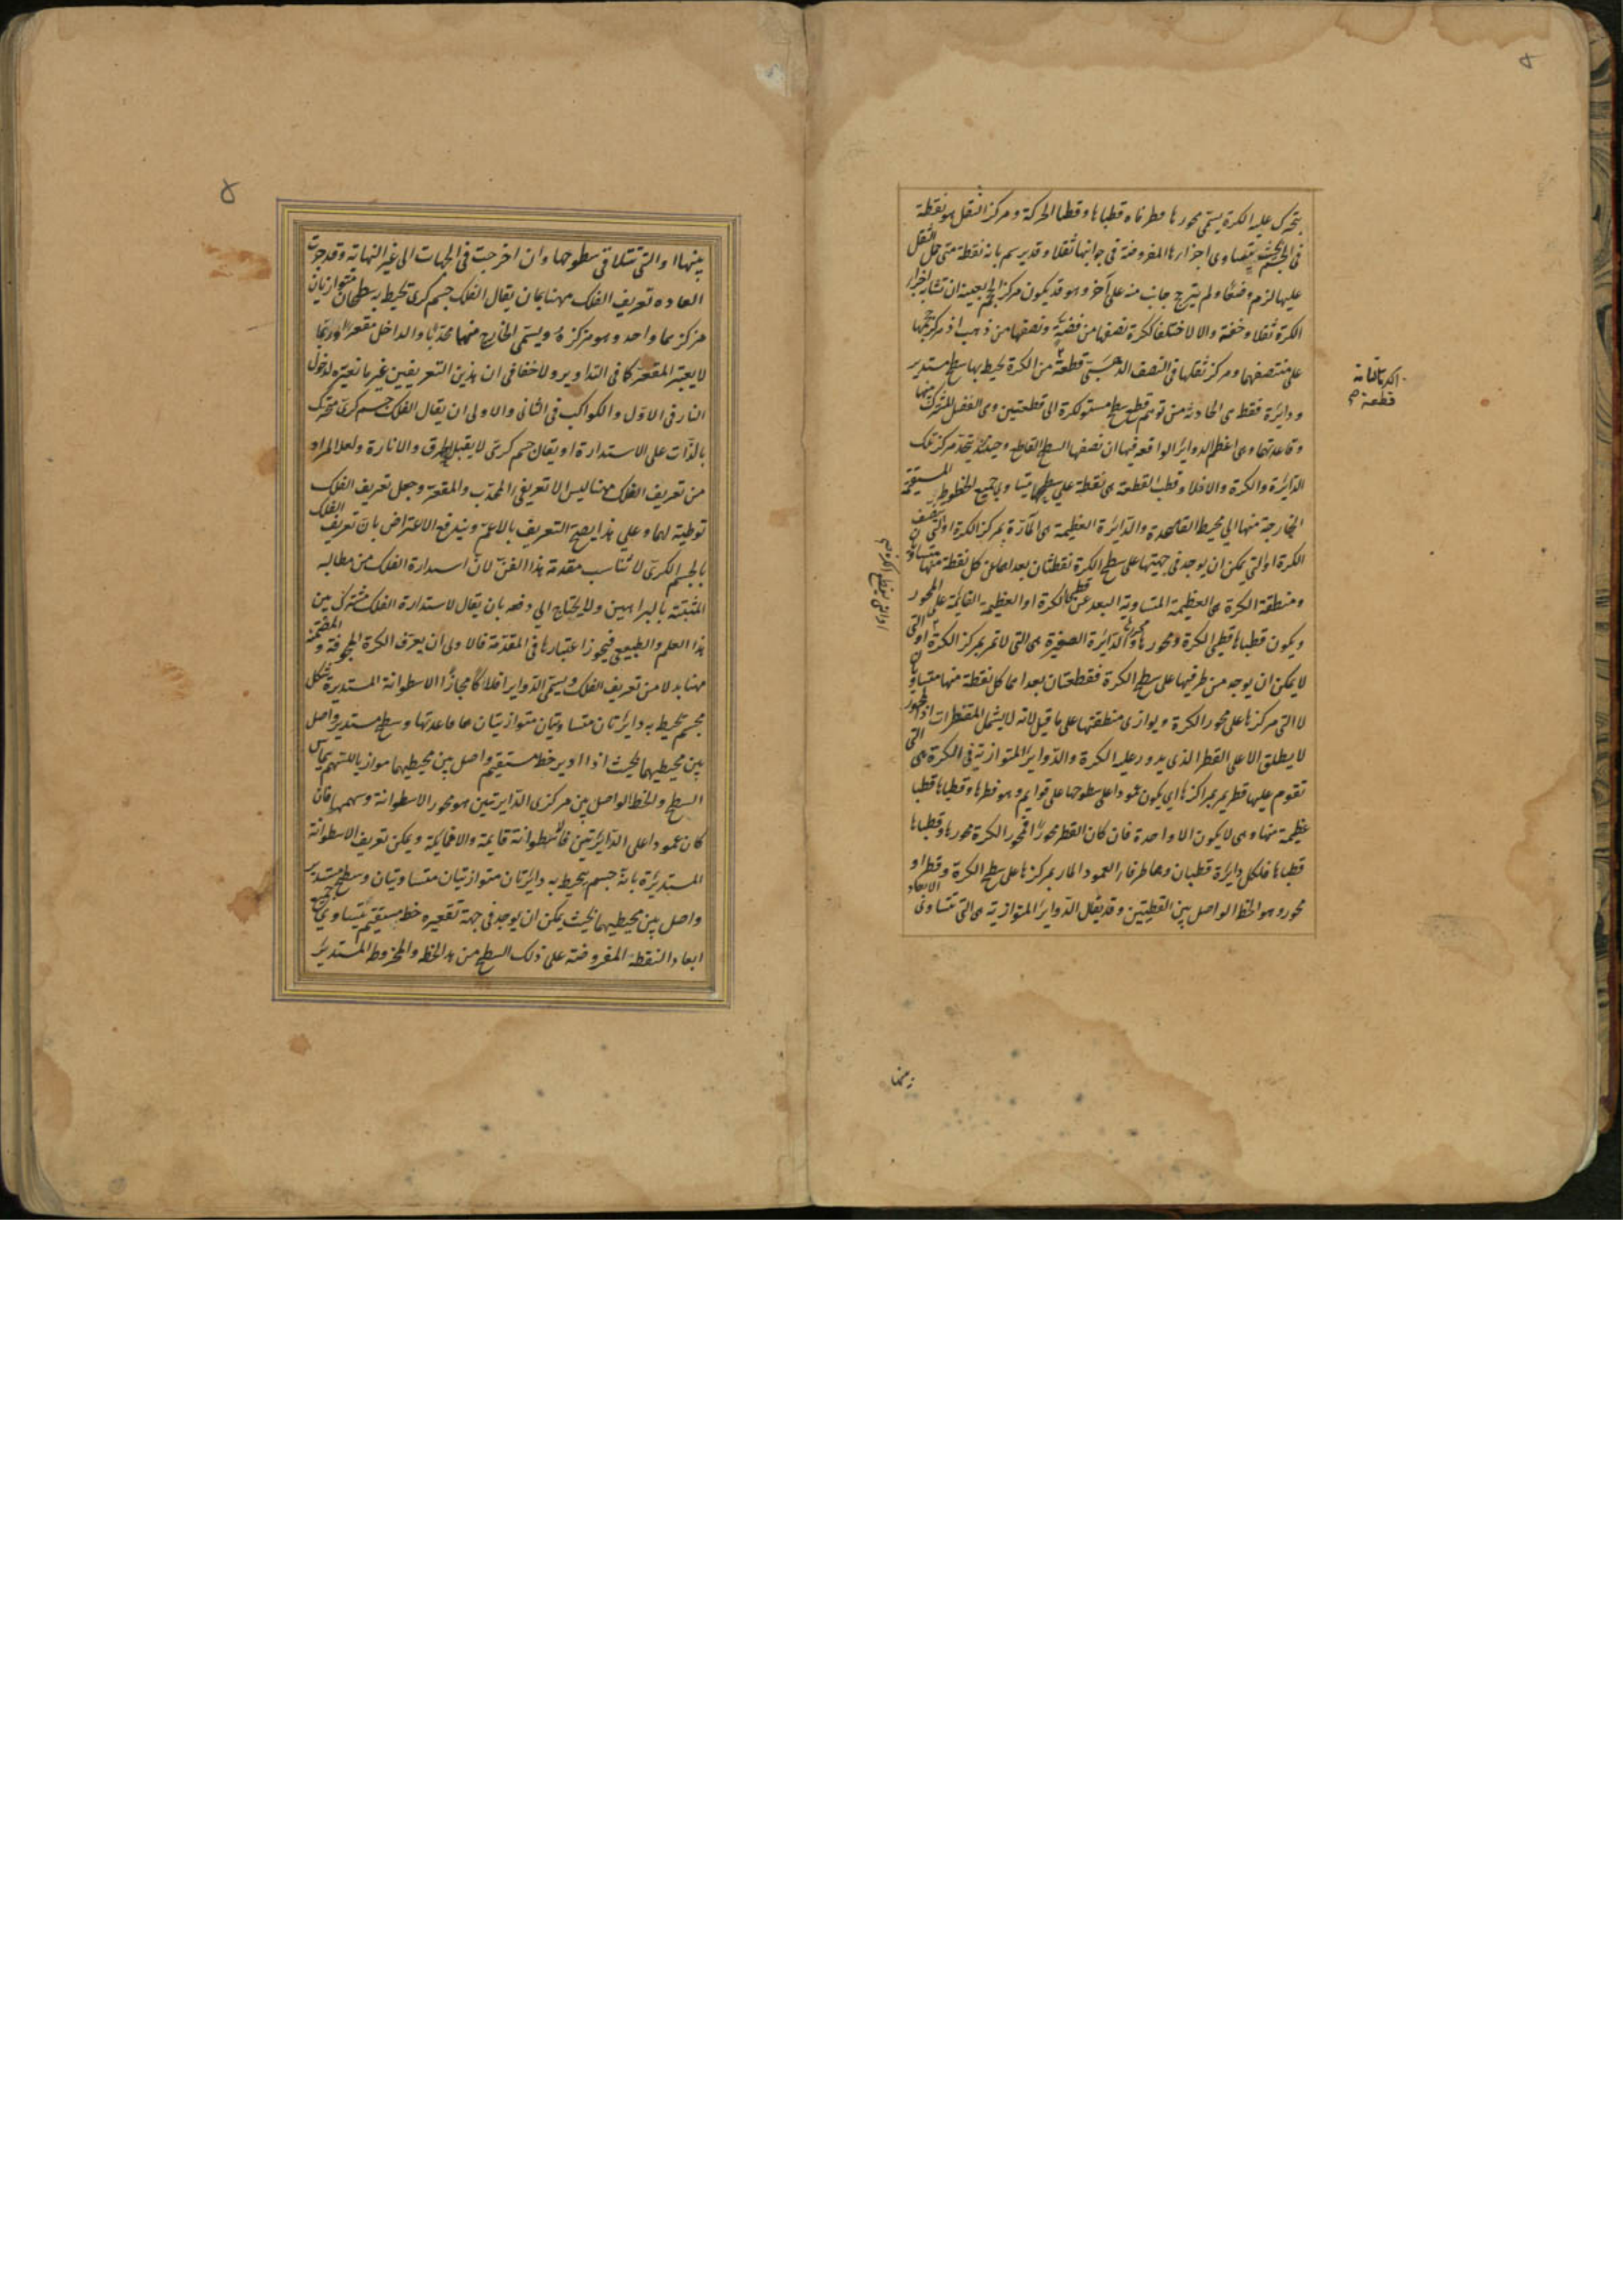 يتحرك عليه الكرة يسمى محورها وطرفاه قطباها وقطبا الحركة ومركز الثقل هو نقطة
في الجسم بحيث يتساوى اجزاءها المفروضة في جوانبها ثقلا وقد يرسم بانه نقطة متى حمل الثقل
عليها لزم وضعًا ولم يترجح جانب منه على آخر وهو قد يكون مركز الحجم بعينه ان تشابه اجزاء
الكرة ثقلا وخفة والا لاختلفا ككرة نصفها من فضة ونصفها من ذهب اذ مركز حجمها
على منتصفهما ومركز ثقلها في النصف الذهبي قطعة من الكرة يحيط بها سطح مستدير
ودائرة فقط هي الحادثة من توهم قطع سطح مستو لكرة الى قطعتين وهي الفصل المشترك بينهما
وقاعدتهما وهي اعظم الدوائر الواقعة فيها ان نصفها السطح القاطع وحينئذ يتحد مركز تلك
الدائرة والكرة والا فلا وقطب القطعة هي نقطة على سطحها يتساوى جميع الخطوط المستقيمة
الخارجة منها الي محيط القاعدة والدائرة العظيمة هي المارة بمركز الكرة او التي تنصف
الكرة او التي يمكن ان يوجد في جهتيها على سطح الكرة نقطتان بعداهما عن كل نقطة منها متساويان
ومنطقة الكرة هي العظيمة المتساوية البعد عن قطبي الكرة او العظيمة القائمة على المحور
ويكون قطباها قطبي الكرة ومحورها محورها والدائرة الصغيرة هي التي لا تمر بمركز الكرة او التي
لا يمكن ان يوجد من طرفيها على سطح الكرة نقطتان بعداهما كل نقطة منها متساويان
لا التي مركزها على محور الكرة ويوازي منطقتها على ما قيل لانه لا يشمل المقنطرات اذ المحور
لا يطلق الا على القطر الذي يدور عليه الكرة والدوائر المتوازية في الكرة هي التي
تقوم عليها قطر يمر بمراكزها اي يكون عمودا على سطوحها على قوايم وهو قطرها وقطباها قطبا
عظيمة منها وهي لا يكون الا واحدة فان كان القطر محورًا فمحور الكرة محورها وقطباها
قطباها فلكل دايرة قطبان وهما طرفا العمود المار بمركزها على سطح الكرة وقطر او
محور وهو الخط الواصل بين القطبين وقد يقال الدواير المتوازية هي التي تتساوى الابعاد
قطعة
بينها او التي تتلاقي سطوحها وان اخرجت في الجهات الى غير النهاية وقد جرت
العاده تعريف الفلك ههنا بان يقال الفلك جسم كرى يحيط به سطحان متوازيان
مركزهما واحد وهو مركزه ويسمى الخارج منهما محدبا والداخل مقعرا وربما
لا يعتبر المقعر كما في التداوير ولا خفا في ان هذين التعريفين غير مانعين لدخول
النار في الاول والكواكب في الثاني والاولى ان يقال الفلك جسم كري متحرك
بالذات على الاستدارة او يقال جسم كري لا يقبل الخرق والانارة ولعل المراد
من تعريف الفلك ههنا ليس الا تعريفي المحدب والمقعر وجعل تعريف الفلك
توطية لهما وعلي هذا يصح التعريف بالاعم ويندفع الاعتراض بان تعريف الفلك
بالجسم الكري لا تناسب مقدمة هذا الفن لان استدارة الفلك من مطالبه
المثبتة بالبراهين ولا يحتاج الي دفعه بان يقال لاستدارة الفلك مشترك بين
هذا العلم والطبيعي فيجوز اعتبارها في المقدمة فالاولى ان يعرف الكرة المجوفة والمصمتة
ههنا بدلا من تعريف الفلك ويسمى الدواير افلاكًا مجازًا الاسطوانة المستديرة شكل
مجسم يحيط به دايرتان متساويتان متوازيتان هما قاعدتها وسطح مستدير واصل
بين محيطيهما بحيث اذا ادير خط مستقيم واصل بين محيطيهما موازيا للسهم يماس
السطح والخط الواصل بين مركزي الدايرتين هو محور الاسطوانة وسهمها فان
كان عمودا على الدايرتين فالاسطوانة قايمة والا فمايلة ويمكن تعريف الاسطوانة
المستديرة بانه جسم يحيط به دايرتان متوازيتان متساويتان وسطح مستدير
واصل بين محيطيهما بحيث يمكن ان يوجد في جهة تقعيره خط مستقيم يتساوي جميع
ابعاد النقطة المفروضة على ذلك السطح من هذا الخط والمخروط المستدير